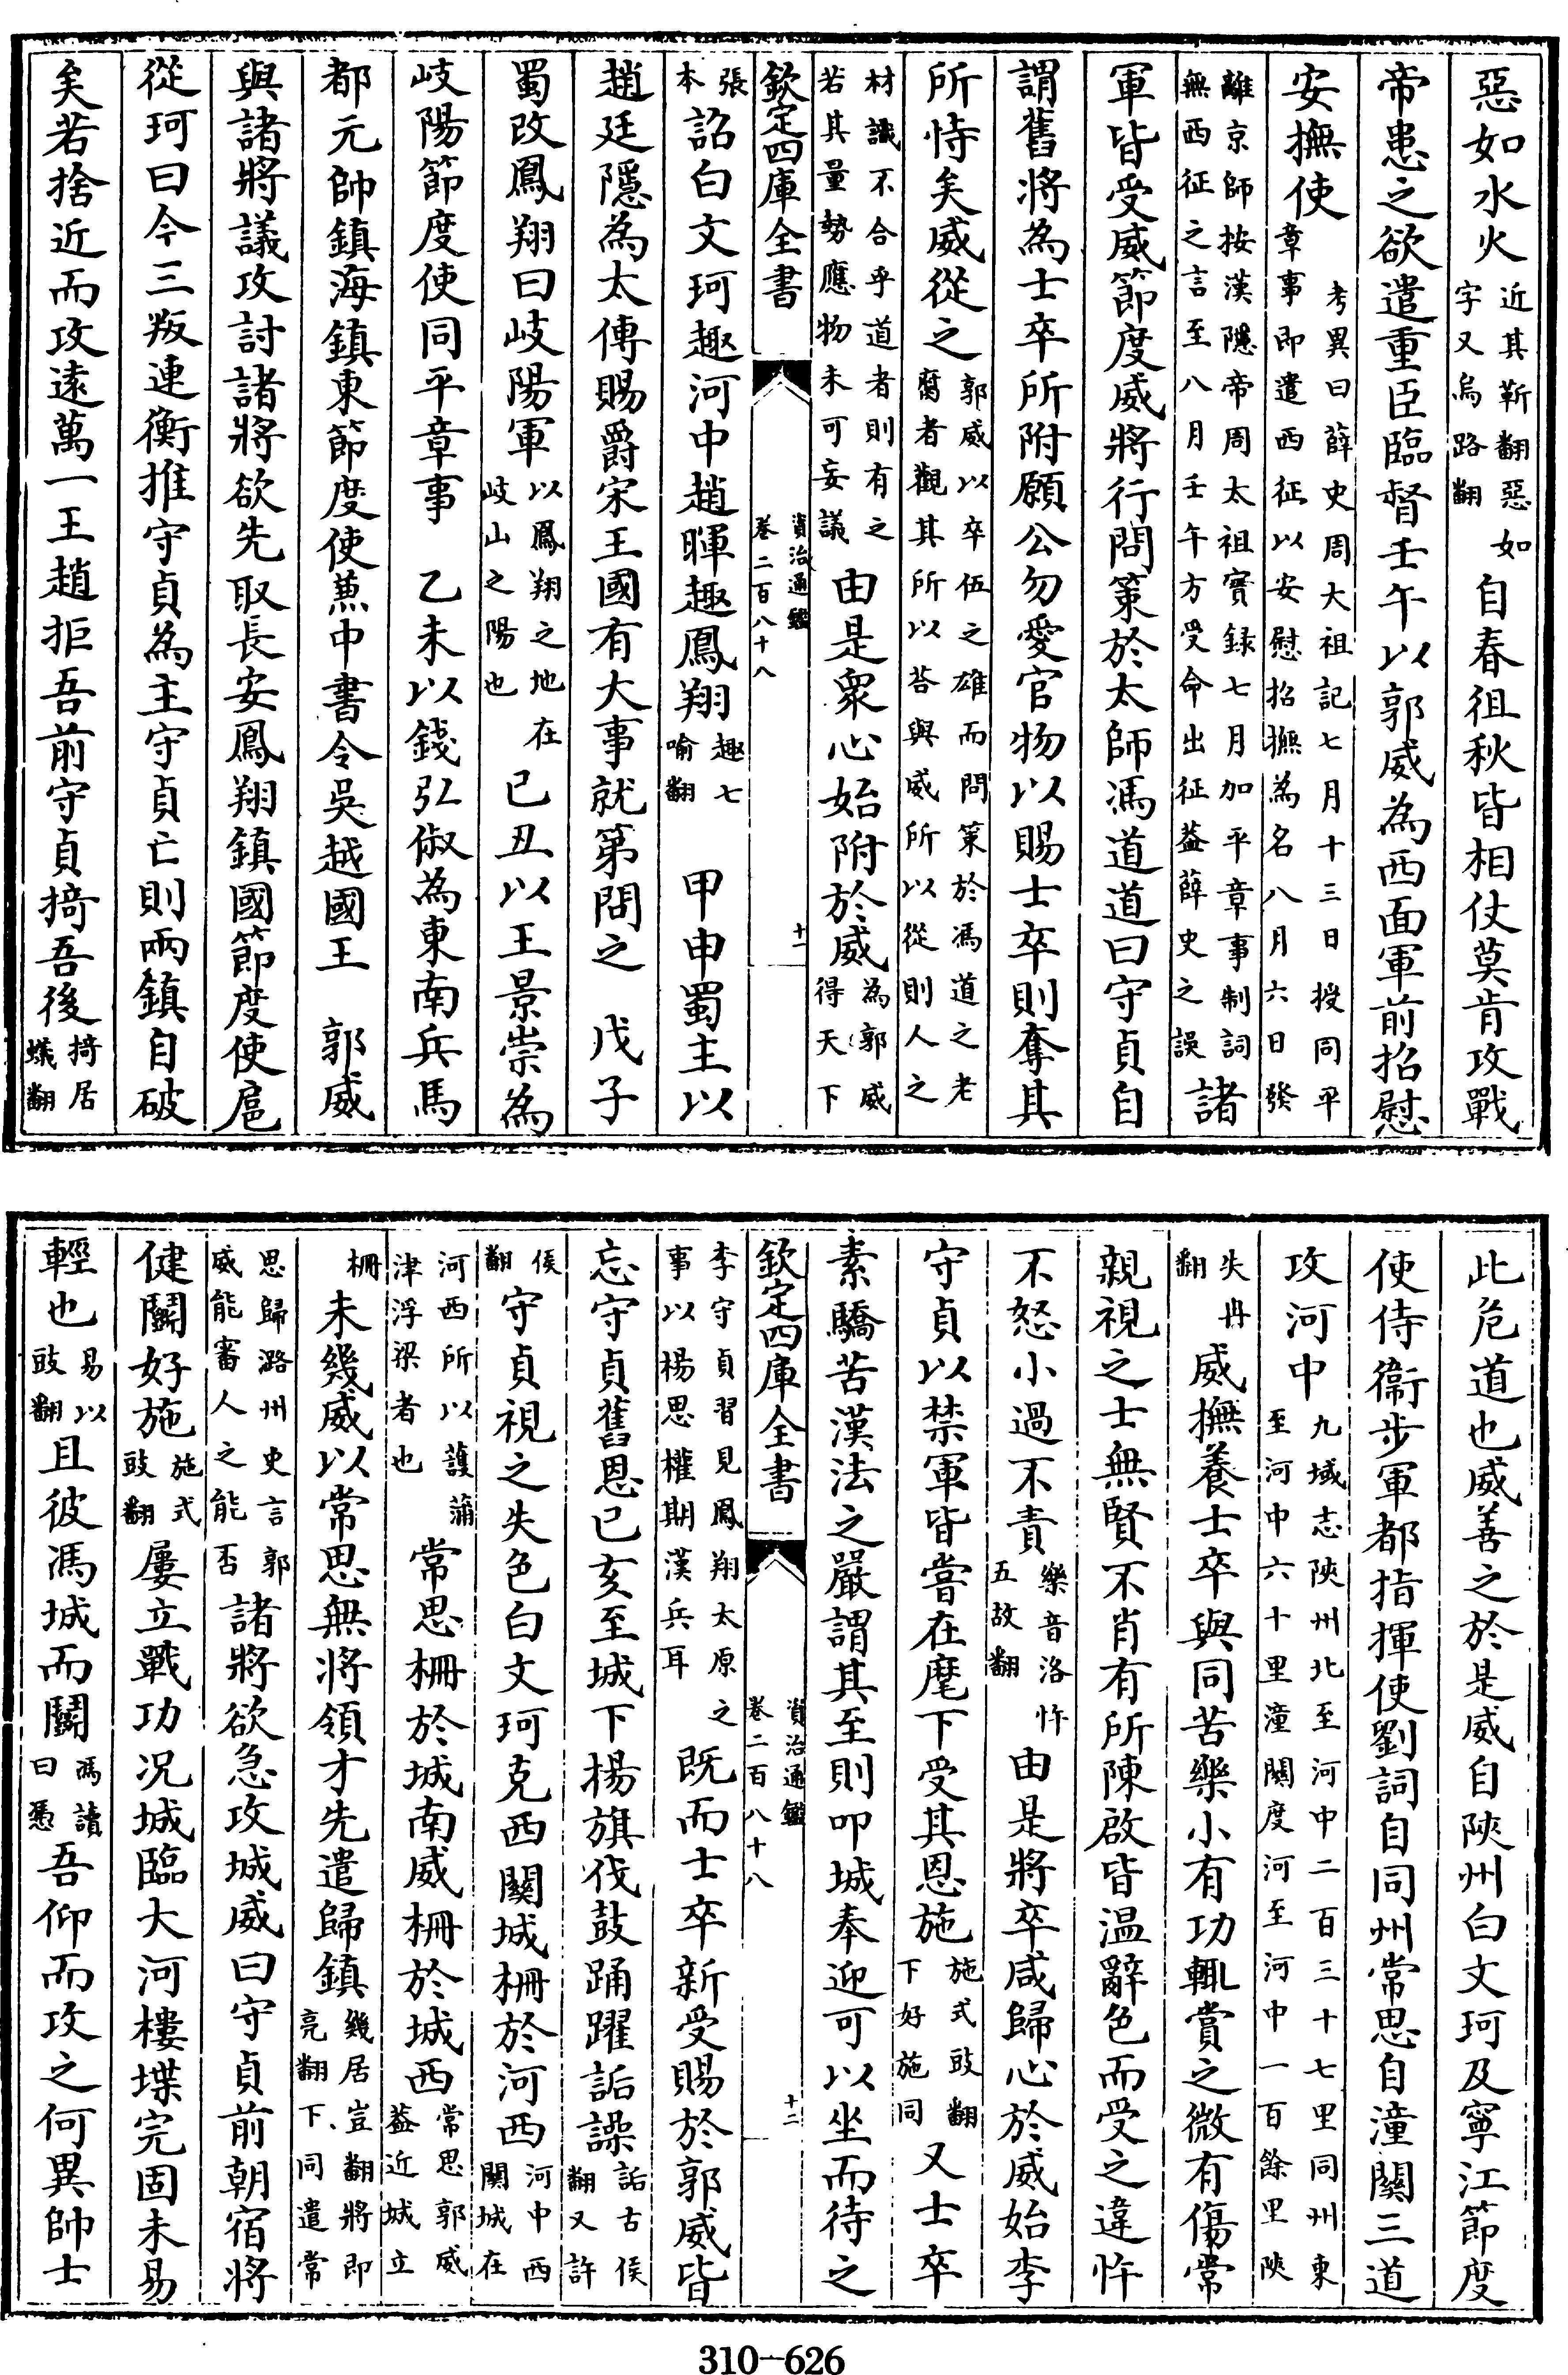 惡如水火近其靳翻惡如字又烏路翻自春徂秋皆相仗莫肯攻戰
帝患之欲遣重臣臨督壬午以郭威為西面軍前招慰
安撫使考異曰薛史周太祖記七月十三日授同平章事即遣西征以安慰招撫為名八月六日發
離京師按漢隱帝周太祖實録七月加平章事制詞無西征之言至八月壬午方受命出征葢薛史之誤諸
軍皆受威節度威將行問策於太師馮道道曰守貞自
謂舊將為士卒所附願公勿愛官物以賜士卒則奪其
所恃矣威從之郭威以卒伍之雄而問策於馮道之老腐者觀其所以荅與威所以從則人之
材識不合乎道者則有之若其量勢應物未可妄議由是衆心始附於威為郭威得天下
欽定四庫全書 資治通鑑 卷二百八十八 十一
張本詔白文珂趣河中趙暉趣鳳翔趣七喻翻 甲申蜀主以
趙廷隱為太傅賜爵宋王國有大事就第問之 戊子
蜀改鳳翔曰岐陽軍以鳳翔之地在岐山之陽也己丑以王景崇為
岐陽節度使同平章事 乙未以錢弘俶為東南兵馬
都元帥鎮海鎮東節度使兼中書令吳越國王 郭威
與諸將議攻討諸將欲先取長安鳳翔鎮國節度使扈
從珂曰今三叛連衡推守貞為主守貞亡則兩鎮自破
矣若捨近而攻遠萬一王趙拒吾前守貞掎吾後掎居蟻翻
此危道也威善之於是威自陝州白文珂及寧江節度
使侍衞步軍都指揮使劉詞自同州常思自潼關三道
攻河中九域志陝州北至河中二百三十七里同州東至河中六十里潼關度河至河中一百餘里陝
失冉翻威撫養士卒與同苦樂小有功輒賞之微有傷常
親視之士無賢不肖有所陳啟皆温辭色而受之違忤
不怒小過不責樂音洛忤五故翻由是將卒咸歸心於威始李
守貞以禁軍皆嘗在麾下受其恩施施式豉翻下好施同又士卒
素驕苦漢法之嚴謂其至則叩城奉迎可以坐而待之
欽定四庫全書 資治通鑑 卷二百八十八 十二
李守貞習見鳳翔太原之事以楊思權期漢兵耳既而士卒新受賜於郭威皆
忘守貞舊恩己亥至城下揚旗伐鼓踊躍詬譟詬古侯翻又許
侯翻守貞視之失色白文珂克西關城柵於河西河中西關城在
河西所以護蒲津浮梁者也常思柵於城南威柵於城西常思郭威葢近城立
柵未幾威以常思無將領才先遣歸鎮幾居豈翻將即亮翻下同遣常
思歸潞州史言郭威能審人之能否諸將欲急攻城威曰守貞前朝宿將
健鬬好施施式豉翻屢立戰功况城臨大河樓堞完固未易
輕也易以豉翻且彼馮城而鬬馮讀曰憑吾仰而攻之何異帥士
310-626